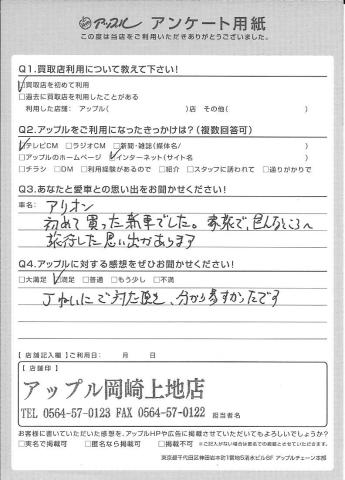 アップル アンケート用紙
この度は当店をご利用いただきありがとうございました。
Q1.買取店利用について教えて下さい!
□買取店を初めて利用
□過去に買取店を利用したことがある
利用した店舗: アップル( )店 その他( )
Q2.アップルをご利用になったきっかけは?(複数回答可)
□テレビCM □ラジオCM □新聞・雑誌(媒体名/ )
□アップルのホームページ □インターネット(サイト名 )
□チラシ □DM □利用経験があるので □紹介 □スタッフに誘われて □通りがかりで
Q3.あなたと愛車との思い出をお聞かせください!
車名: アリオン
初めて買った新車でした。家族で、色んなところへ
旅行した思い出があります
Q4.アップルに対する感想をぜひお聞かせください!
□大満足 □満足 □普通 □もう少し □不満
【店舗記入欄】ご利用日: 月 日
【店舗印】
アップル岡崎上地店
TEL 0564-57-0123 FAX 0564-57-0122
担当者名
お客様に書いていただいた感想を、アップルHPや広告に掲載させていただいてもよろしいでしょうか?
□実名で掲載可 □匿名なら掲載可 □掲載不可 ※ご記入がない場合は匿名での掲載とさせていただきます。
東京都千代田区神田岩本町1番地5清水ビル8F アップルチェーン本部